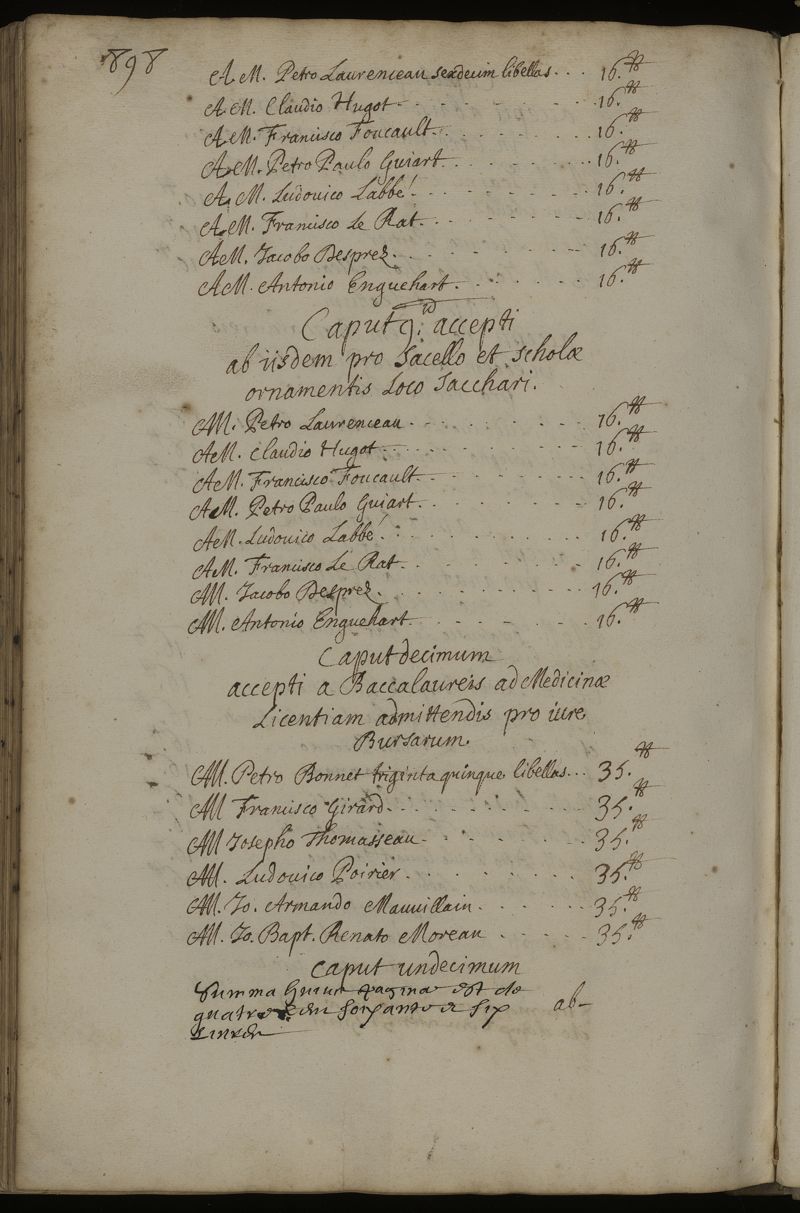 898
A M. Petro Laurenceau sexdecim libellas . . . 16.tt
A M. Claudio Hugot . . . 16.tt
A M. Francisco Foucault . . . 16.tt
A M. Petro Paulo Guiart . . . 16.tt
A M. Ludovico Labbé . . . 16.tt
A M. Francisco Le Rat . . . 16.tt
A M. Jacobo Desprez . . . 16.tt
A M. Antonio Enguehart . . . 16.tt
Caput 9. accepti
ab iisdem pro Sacello et scholæ
ornamentis Loco Sacchari.
A M. Petro Laurenceau . . . 16.tt
A M. Claudio Hugot . . . 16.tt
A M. Francisco Foucault . . . 16.tt
A M. Petro Paulo Guiart . . . 16.tt
A M. Ludovico Labbé . . . 16.tt
A M. Francisco Le Rat . . . 16.tt
A M. Jacobo Desprez . . . 16.tt
A M. Antonio Enguehart . . . 16.tt
Caput decimum
accepti a Baccalaureis ad Medicinæ
Licentiam admittendis pro iure
Bursarum.
A M. Petro Bonnet triginta quinque libellas . . . 35.tt
A M Francisco Girard . . . 35.tt
A M Josepho Thomasseau . . . 35.tt
A M. Ludovico Poirier . . . 35.tt
A M. Jo. Armando Mauvillain . . . 35.tt
A M. Jo. Bapt. Renato Moreau . . . 35.tt
Caput undecimum
Summa huius paginae est de
quatre cen soixante et six ab-
Livres